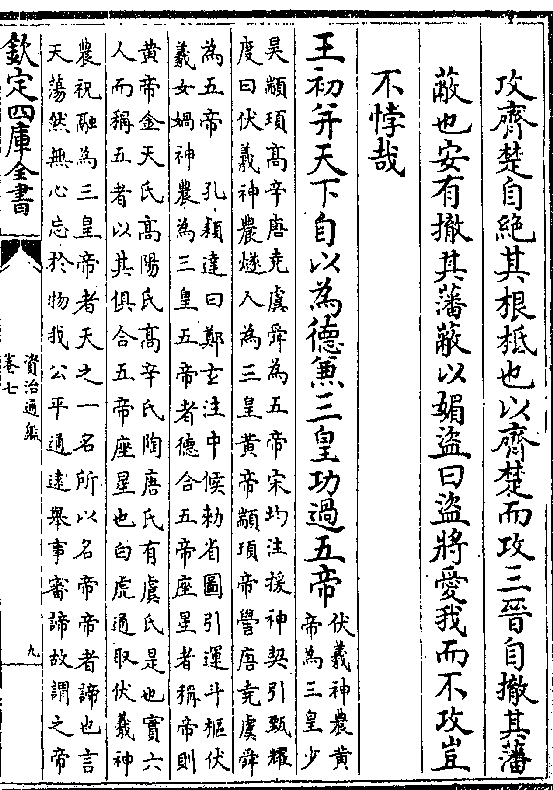 攻齊楚自絶其根柢也以齊楚而攻三晉自撤其藩
蔽也安有撤其藩蔽以媚盗曰盗將愛我而不攻豈
不悖哉
王初并天下自以為德兼三皇功過五帝
伏羲神農黄
帝為三皇少
昊顓頊髙辛唐堯虞舜為五帝宋均注援神契引甄耀
度曰伏羲神農燧人為三皇黄帝顓頊帝嚳唐堯虞舜
為五帝　孔頴達曰鄭玄注中候勅省圖引運斗樞伏
羲女媧神農為三皇五帝者德合五帝座星者稱帝則
黄帝金天氏髙陽氏髙辛氏陶唐氏有虞氏是也實六
人而稱五者以其俱合五帝座星也白虎通取伏羲神
農祝融為三皇帝者天之一名所以名帝帝者諦也言
天蕩然無心忘於物我公平通遠舉事審諦故謂之帝
欽定四庫全書
資治通鑑
卷七
九